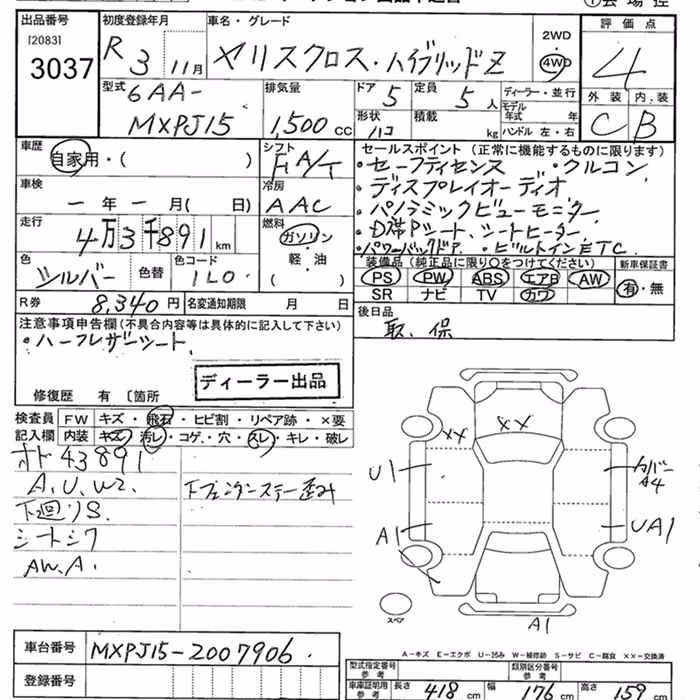 出品番号
[2083]
3037
初度登録年月
R 3 11月
車名・グレード
ヤリスクロス・ハイブリッドZ
2WD
4WD
評価点
4
外装 内装
C B
型式
6AA-
MXPJ15
排気量
1,500 cc
ドア 5
定員 5 人
形状 ハコ
積載 kg
ディーラー・並行
モデル年式 年
ハンドル 左・右
車歴
自家用・( )
シフト
FA/T
車検
一 年 一 月( 日)
冷房
AAC
走行
4万3千891 km
燃料
ガソリン
軽・油
色
シルバー
色替
色コード
1L0
R券
8,340 円
名変通知期限 月 日
セールスポイント(正常に機能するものに限ります)
・セーフティセンス ・クルコン
・ディスプレイオーディオ
・パノラミックビューモニター
・D席Pシート、シートヒーター
・パワーバックドア ・ビルトインETC
装備品(純正品に限り○をつけてください)
PS PW ABS エアB AW
SR ナビ TV カワ
新車保証書
有・無
後日品
取、保
注意事項申告欄(不具合内容等は具体的に記入して下さい)
・ハーフレザーシート
ディーラー出品
修復歴 有 〔箇所
検査員記入欄
FW キズ・飛石・ヒビ割・リペア跡・×要
内装 キズ・汚レ・コゲ・穴・スレ・キレ・破レ
オド43891
A、U、W2、
下廻りS
シートシワ
AW.A.
下フェンダーステー歪み
XX
XX
U1
A1
カバーA4
UA1
A1
スペア
A-キズ E-エクボ U-凹み W-補修跡 S-サビ C-腐食 ××-交換済
車台番号
MXPJ15-2007906
登録番号
型式指定番号 参考
類別区分番号 参考
車庫証明用 参考
長さ 418 cm
幅 176 cm
高さ 159 cm